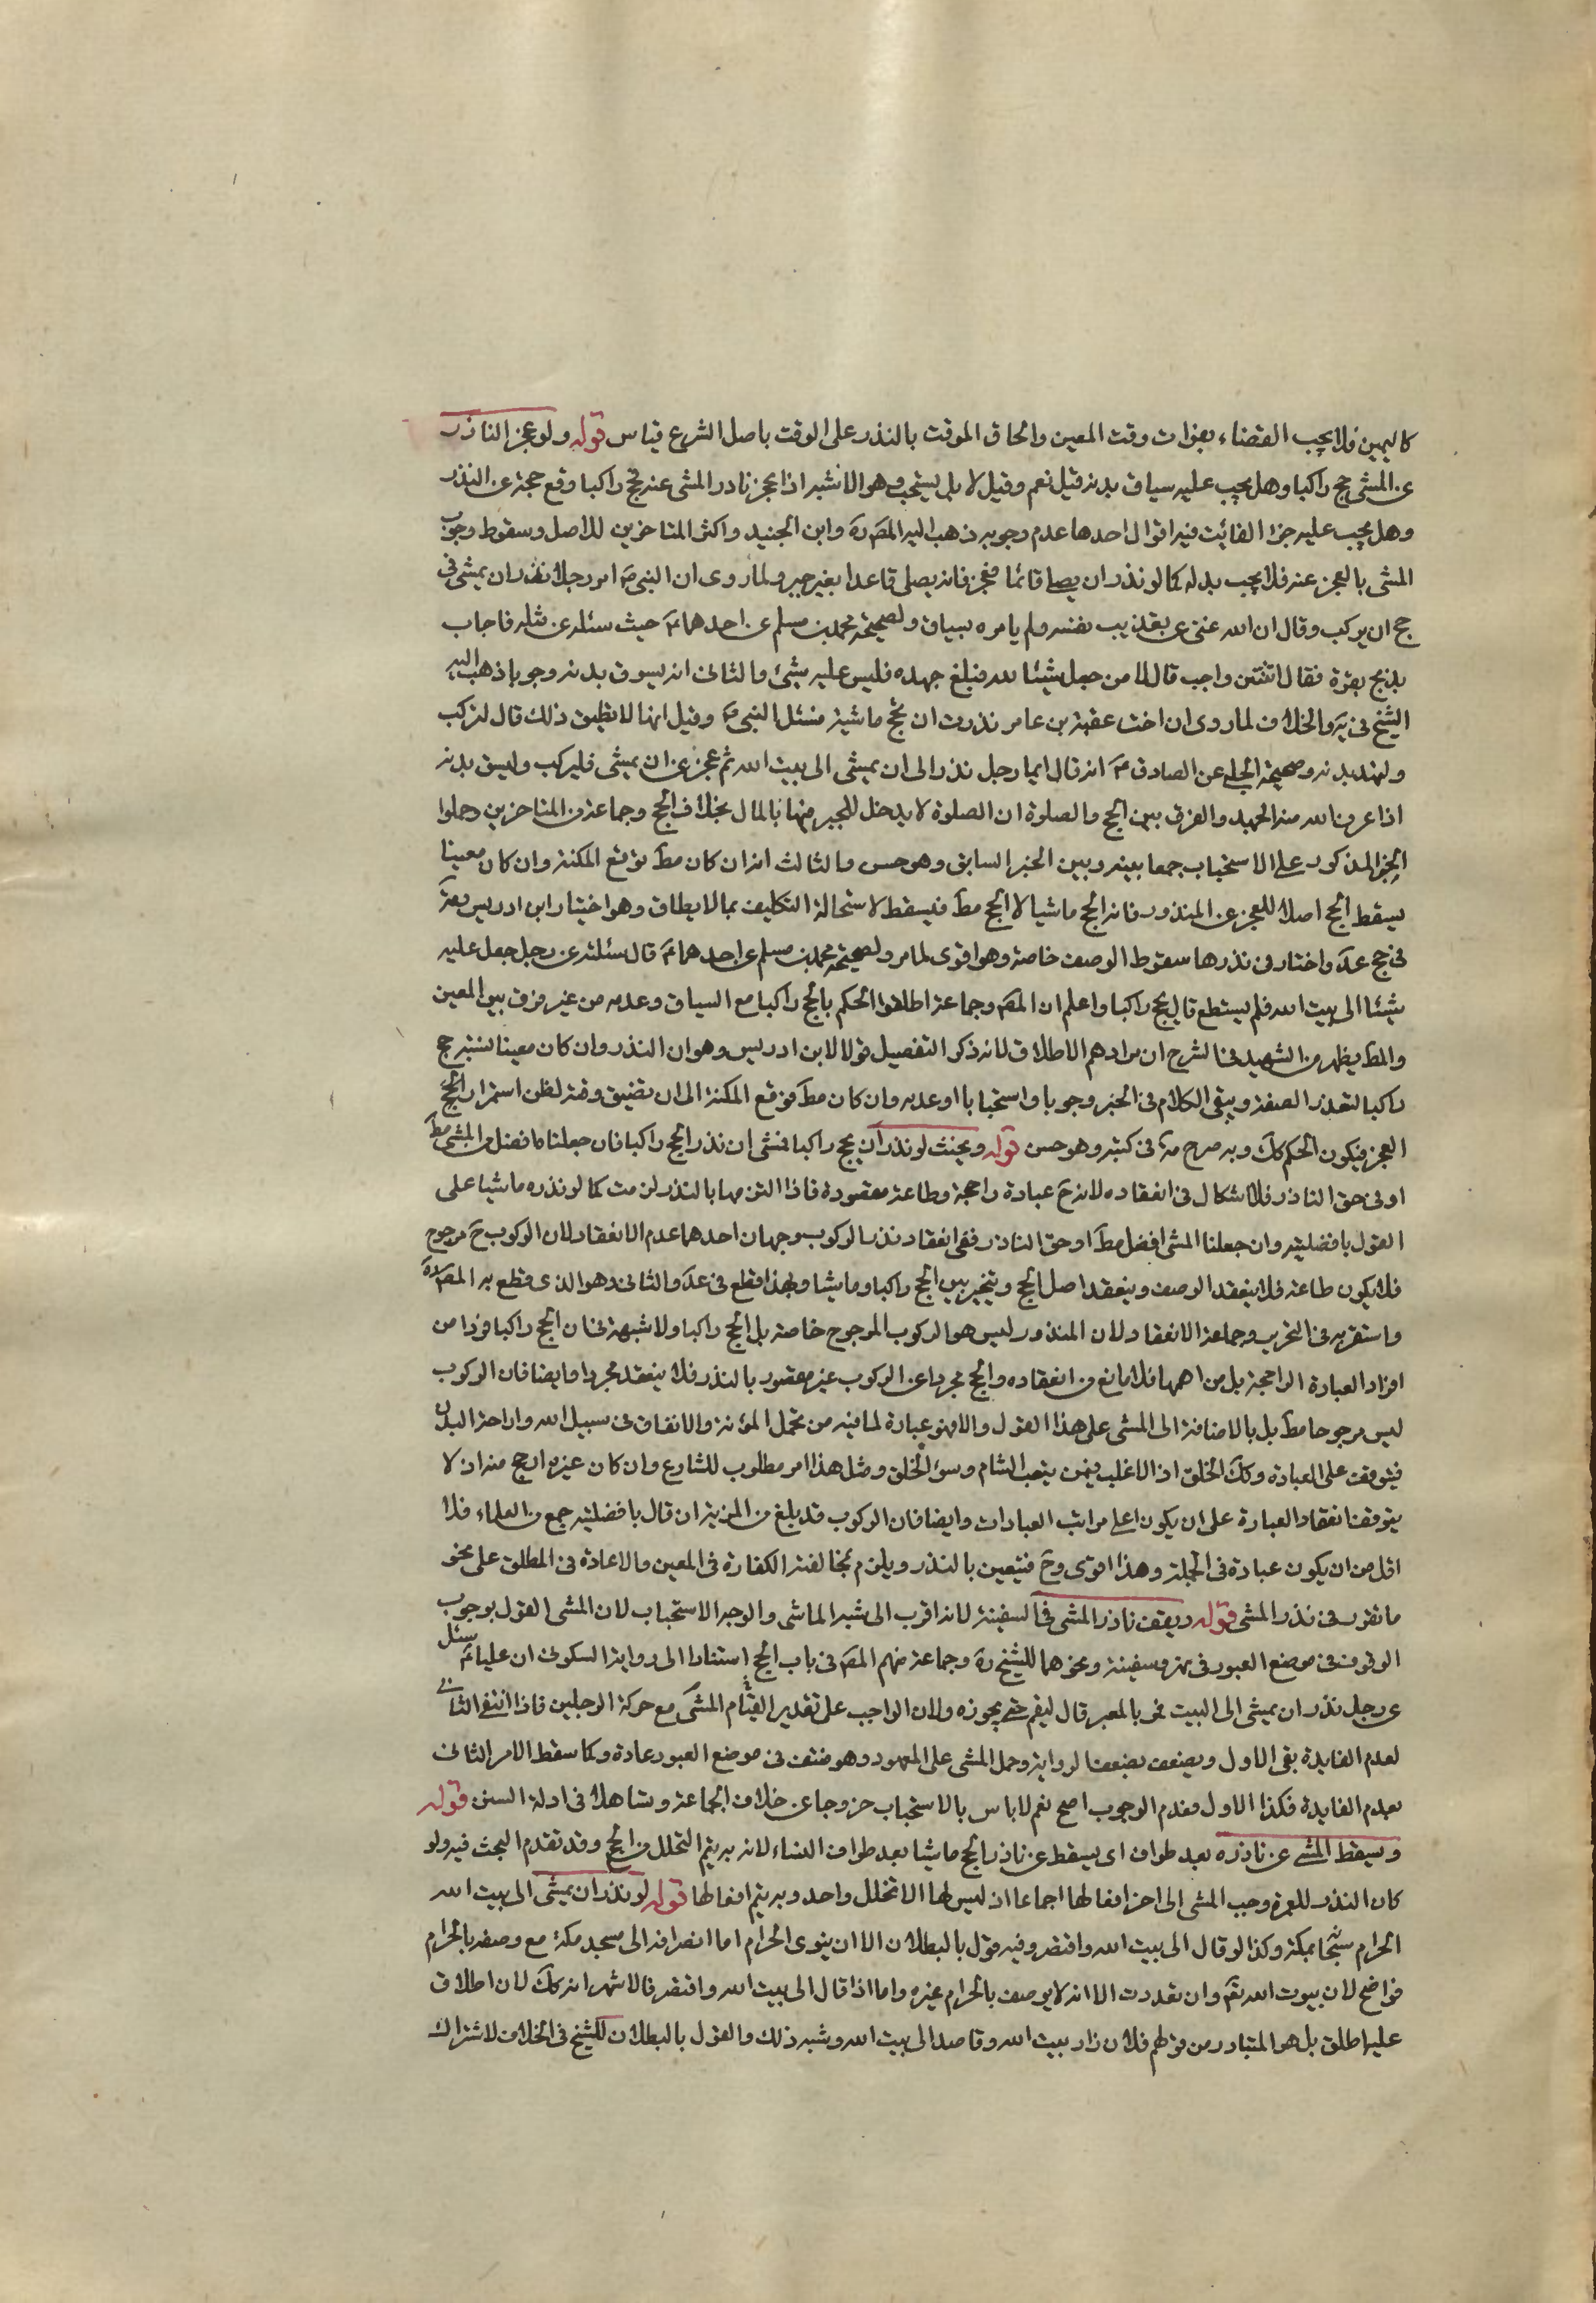 كاليمين فلا يجب القضاء بفوات وقت المعين والحاق الموقت بالنذر على الوقت باصل الشرع قياس قوله ولو عجز الناذر
عن المشى حج راكبا وهل يجب عليه سياق بدنه قيل نعم وقيل لا بل يستحب وهو الاشبه اذا عجز ناذر المشى عنه حج راكبا وقع حجة عن النذر
وهل يجب عليه جبر الفائت فيه اقوال احدها عدم وجوبه ذهب اليه المصَ رة وابن الجنيد واكثر المتاخرين للاصل وسقوط وجوب
المشى بالعجز عنه فلا يجب بدله كما لو نذر ان يصلى قائما فعجز فانه يصلى قاعدا بغير جبر ولما روى ان النبى صَ امر رجلا نذر ان يمشى فى
حج ان يركب وقال ان الله غنى عن تعذيب نفسه ولم يامره بسياق ولصحيحة محمد بن مسلم عن احدهما عَ حيث سئله عن مثله فاجاب
بذبح بقرة فقال اثنتين واجب قال لا من جعل شيئا لله فبلغ جهده فليس عليه شئ والثانى انه يسوق بدنه وجوبا ذهب اليه
الشيخ فى يَه والخلاف لما روى ان اخت عقبة بن عامر نذرت ان تحج ماشية فسئل النبى صَ وقيل انها لا تطيق ذلك قال لتركب
ولتهد بدنه وصحيحة الحلبى عن الصادق عَ انه قال ايما رجل نذر الى ان يمشى الى بيت الله ثم عجز عن ان يمشى فليركب وليسق بدنه
اذا عرف الله منه الجهد والفرق بين الحج والصلوة ان الصلوة لا يدخل للجبر فيها بالمال بخلاف الحج وجماعة من المتاخرين حملوا
الخبر المذكور على الاستحباب جمعا بينه وبين الخبر السابق وهو حسن والثالث انه ان كان مطَ توقع المكنة وان كان معينا
يسقط الحج اصلا للعجز عن المنذور فانه الحج ماشيا لا الحج مطَ فيسقط لاستحالة التكليف بما لا يطاق وهو اختيار ابن ادريس
فى حج عدَ واختار فى نذرها سقوط الوصف خاصة وهو اقوى لما مر ولصحيحة محمد بن مسلم عن احدهما عَ قال سئلته عن رجل جعل عليه
شيئا الى بيت الله فلم يستطع قال يحج راكبا واعلم ان المصَ وجماعة اطلقوا الحكم بالحج راكبا مع السياق وعدمه من غير فرق بين المعين
والمطَ ويظهر من الشهيد فى الشرح ان مرادهم الاطلاق لانه ذكر التفصيل قولا لابن ادريس وهو ان النذر وان كان معينا بسنة حج
راكبا لتعذر الصفة ويبقى الكلام فى الجبر وجوبا واستحبابا او عدمه وان كان مطَ فوقع المكنة الى ان يتضيق وقته لظن استمرار الحج
العجز فيكون الحكم كك وبه صرح فى كتبه وهو حسن قوله ويحنث لو نذر ان يحج راكبا فمشى ان نذر الحج راكبا فان جعلناه افضل من المشى مطَ
او فى حق الناذر فلا اشكال فى انعقاده لانه حَ عبادة راجحة وطاعة مقصودة فاذا التزمها بالنذر لزمت كما لو نذره ماشيا على
القول بافضليته وان جعلنا المشى افضل مطَ او حق الناذر ففى انعقاد نذر الركوب وجهان احدهما عدم الانعقاد لان الركوب حَ مرجوح
فلا يكون طاعة فلا ينعقد الوصف وينعقد اصل الحج ويتخير بين الحج راكبا وماشيا وبهذا قطع فى عدَ والثانى وهو الذى قطع به المصَ رة
واستقر به فى التحرير وجماعة الانعقاد لان المنذور ليس هو الركوب المرجوح خاصة بل الحج راكبا ولا شبهة فى ان الحج راكبا فردا من
افراد العبادة الراجحة بل من اهمها فلا مانع من انعقاده والحج مجردا عن الركوب غير مقصود بالنذر فلا ينعقد مجردا وايضا فان الركوب
ليس مرجوحا مطَ بل بالاضافة الى المشى على هذا القول والا فهو عبادة لما فيه من تحمل المؤنة والانفاق فى سبيل الله واراحة البدن
فيتوقف على العبادة وكك الخلق اذ الاغلب فيمن يتعب السأم وسوء الخلق ومثل هذا امر مطلوب للشارع وان كان غيره ارجح منه اذ لا
يتوقف انعقاد العبادة على ان يكون اعلى مراتب العبادات وايضا فان الركوب قد بلغ من المزية ان قال بافضليته جمع من العلماء فلا
اقل من ان يكون عبادة فى الجملة وهذا اقوى وحَ فيتعين بالنذر ويلزم بمخالفته الكفارة فى المعين والاعادة فى المطلق على نحو
ما تقرر فى نذر المشى قوله ويقف ناذر المشى فى السفينة لانه اقرب الى شبه الماشى والوجه الاستحباب لان المشى القول بوجوب
الوقوف فى موضع العبور فى نهر وسفينة ونحوهما للشيخ رة وجماعة منهم المصَ فى باب الحج استنادا الى رواية السكونى ان عليا عَ سئل
عن رجل نذر ان يمشى الى البيت فمر بالمعبر قال ليقم حتى يجوزه ولان الواجب على تقدير القيام المشى مع حركة الرجلين فاذا انتفى الثانى
لعدم الفايدة بقى الاول ويضعف بضعف الرواية وحمل المشى على المعهود وهو منتف فى موضع العبور عادة وكما سقط الامر الثانى
بعدم الفايدة فكذا الاول فعدم الوجوب اصح نعم لا باس بالاستحباب خروجا عن خلاف الجماعة وتساهلا فى ادلة السنن قوله
ويسقط المشى عن ناذره بعد طواف اى يسقط عن ناذر الحج ماشيا بعد طواف النساء لانه به يتم التحلل من الحج وقد تقدم البحث فيه ولو
كان النذر للعمرة وجب المشى الى اخر افعالها اجماعا اذ ليس لها الا تحلل واحد وبه يتم افعالها قوله لو نذر ان يمشى الى بيت الله
الحرام بمكة وكذا لو قال الى بيت الله واقتصر وفيه قول بالبطلان الا ان ينوى الحرام اما انصرافه الى مسجد مكة مع وصفه بالحرام
فواضح لان بيوت الله تعَ وان تعددت الا انه لا يوصف بالحرام غيره واما اذا قال الى بيت الله واقتصر فالاشهر انه كك لان اطلاق
عليه اطلق بل هو المتبادر من قولهم فلان زار بيت الله وقاصد الى بيت الله وشبه ذلك والقول بالبطلان للشيخ فى الخلاف لاشتراك